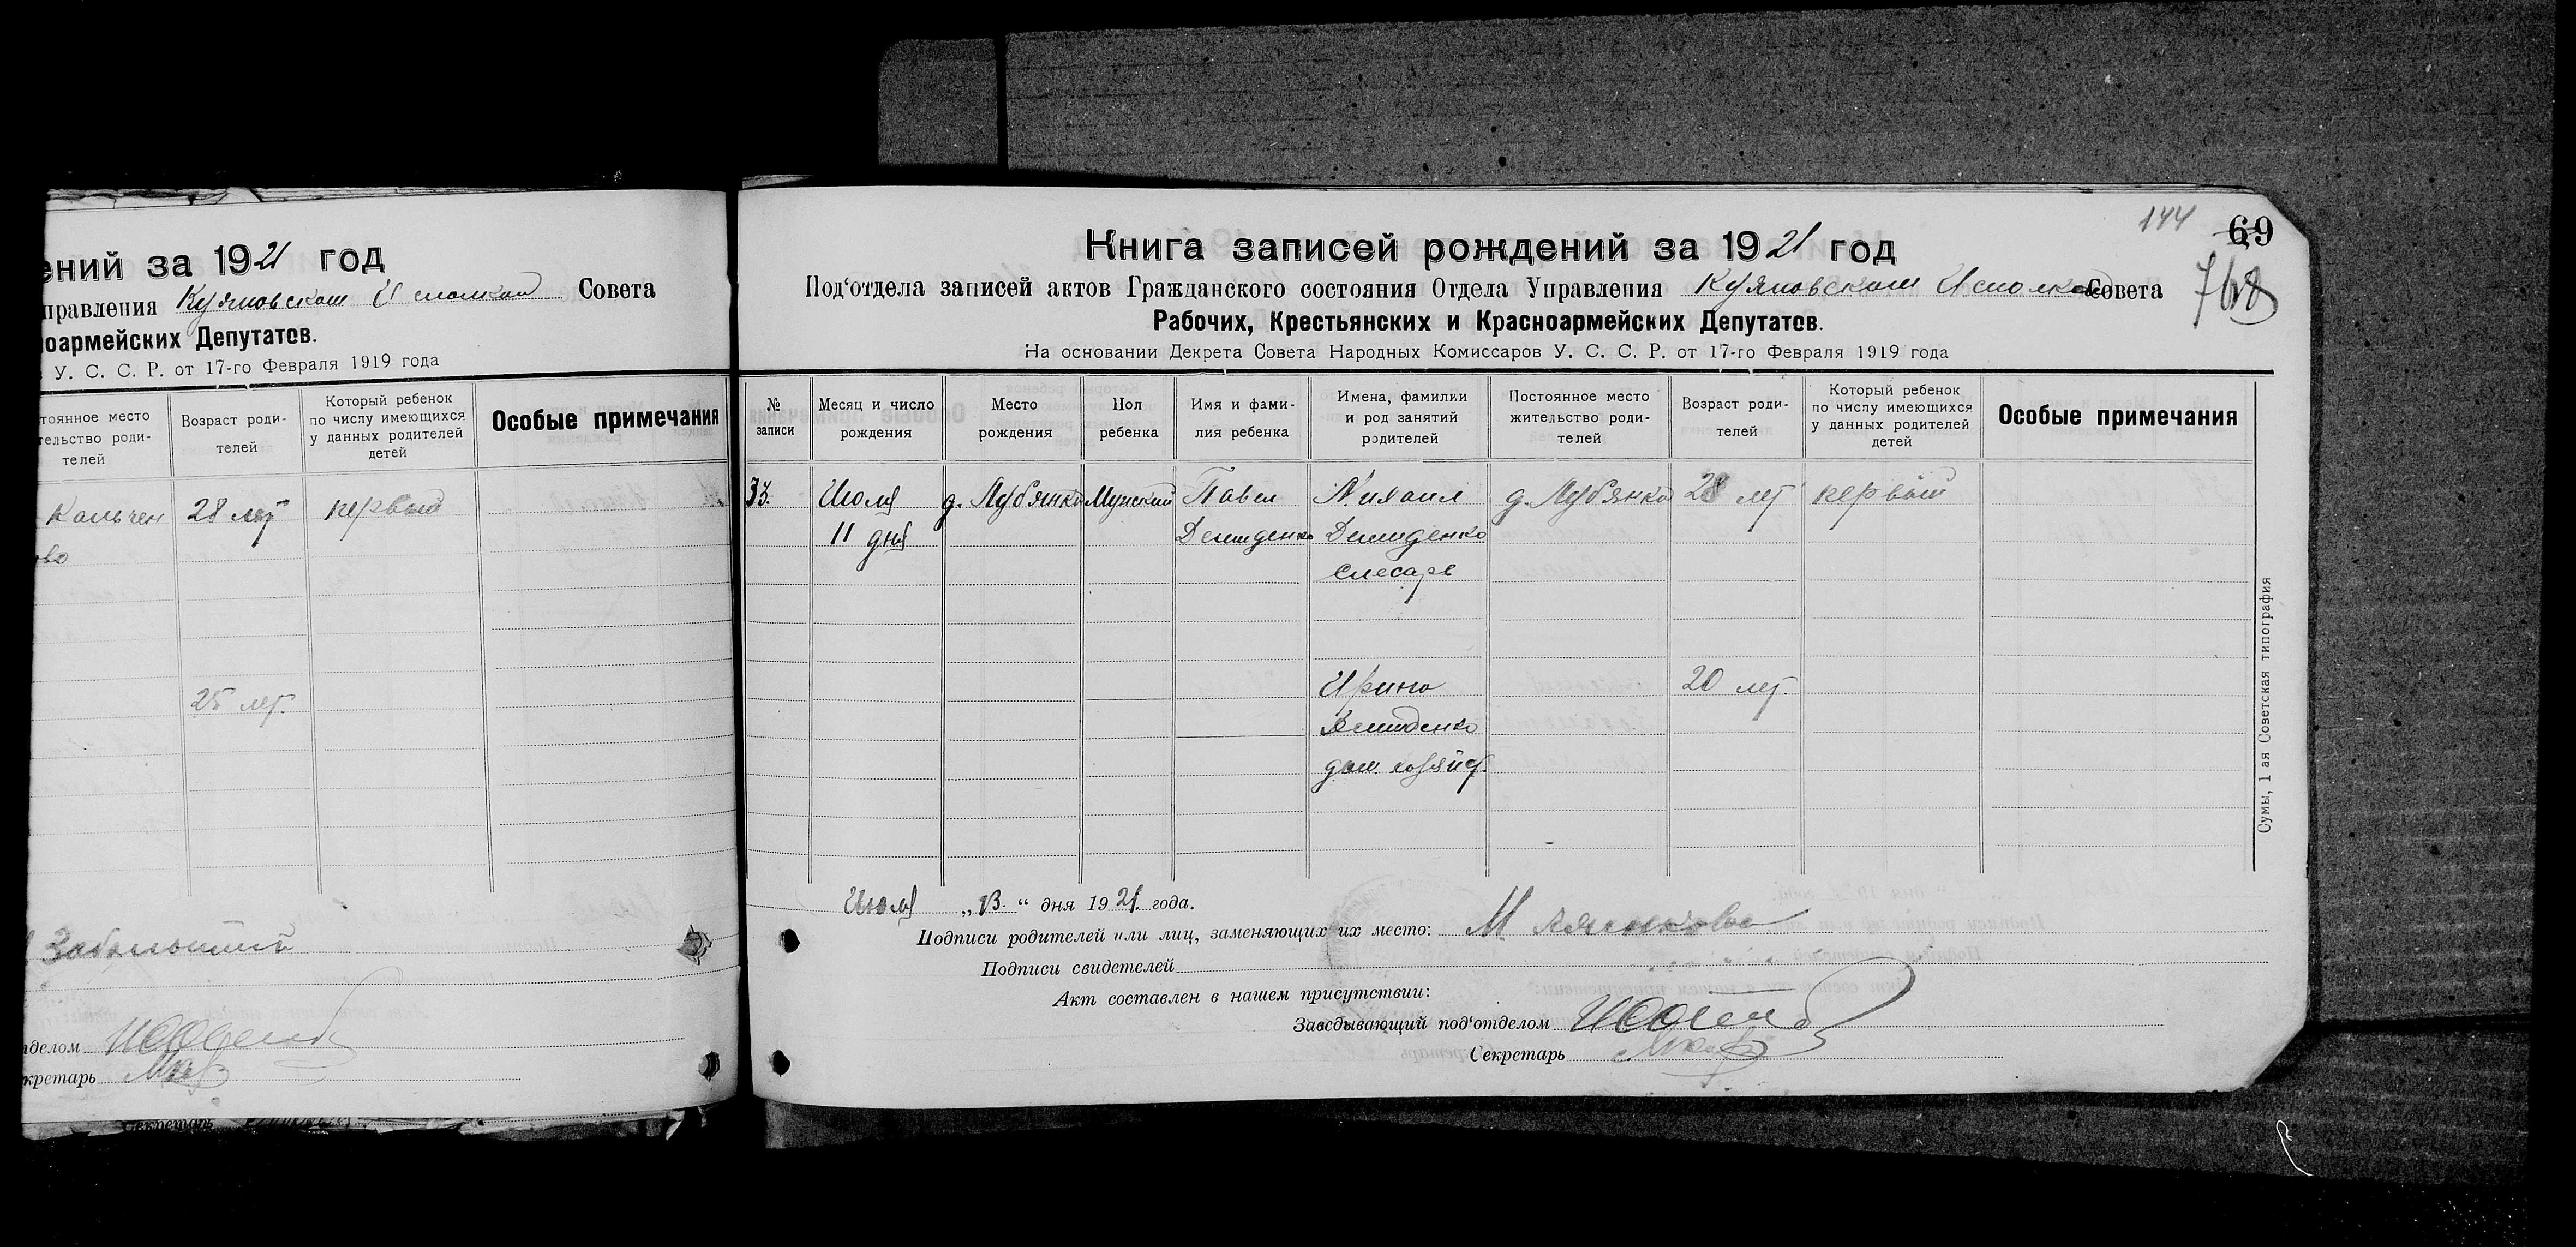 ений за 1921 год
правления Куяновском Исполком Совета
ноармейских Депутатов.
У. С. С. Р. от 17-го Февраля 1919 года
тоянное место
тельство роди-
телей
Возраст роди-
телей
Который ребенок
по числу имеющихся
у данных родителей
детей
Особые примечания
Кальчен 28 лет первый
ово
25 лет.
делом
кретарь
Секретарь
144 69
768
Книга записей рождений за 1921 год
Под‘отдела записей актов Гражданского состояния Отдела Управления Куяновском Исполком Совета
Рабочих, Крестьянских и Красноармейских Депутатов.
На основании Декрета Совета Народных Комиссаров У. С. С. Р. от 17-го Февраля 1919 года
№
записи
Месяц и число
рождения
Место
рождения
Пол
ребенка
Имя и фами-
лия ребенка
Имена, фамилии
и род занятий
родителей
Постоянное место
жительство роди-
телей
Возраст роди-
телей
Который ребенок
по числу имеющихся
у данных родителей
детей
Особые примечания
33. Июля д. Лубянка Мужский Павел Михаил д. Лубянка 28 лет первый
11 дня Демиденко Демиденко
слесарь
Ирина 20 лет.
Демиденко
дом. хозяйс.
Июля „13.“ дня 1921. года.
Подписи родителей или лиц, заменяющих их место: М.
Подписи свидетелей
Акт составлен в нашем присутствии:
Заведывающий под‘отделом
Секретарь
Сумы, 1 ая Советская типография